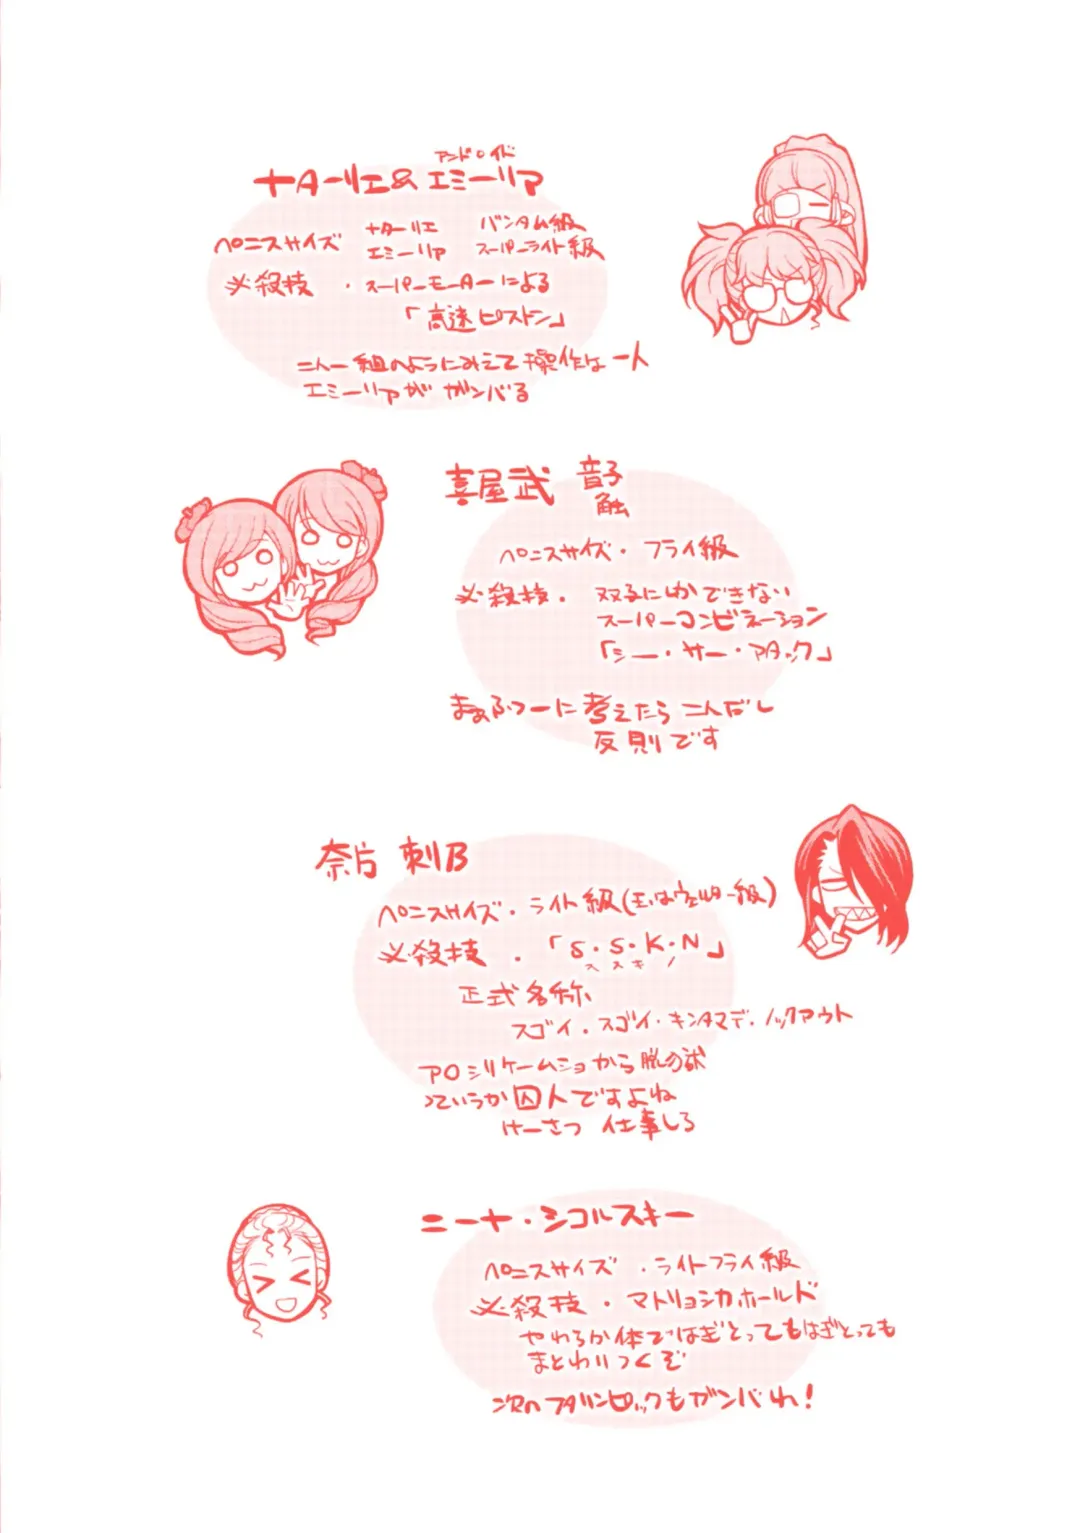 アンドロイド
ナターリエ&エミーリア
ペニスサイズ ナターリエ バンタム級
エミーリア スーパーライト級
必殺技・スーパーモーターによる
「高速ピストン」
二人一組のようにみえて操作は一人
エミーリアがガンバる
喜屋武 音子
触
ペニスサイズ・フライ級
必殺技・双子にしかできない
スーパーコンビネーション
「シー・サー・アタック」
まぁふつーに考えたら二人だし
反則です
奈片 刺B
ペニスサイズ・ライト級(玉はウェルター級)
必殺技・「S・S・K・N」
ススキノ
正式名称
スゴイ・スゴイ・キンタマデ・ノックアウト
アロシリケームショから脱の獄
っていうか囚人ですよね
けーさつ 仕事しろ
ニーナ・シコルスキー
ペニスサイズ・ライトフライ級
必殺技・マトリョシカホールド
やわらか体ではぎとってもはぎとっても
まとわりつくぞ
次のフタリンピックもガンバれ!